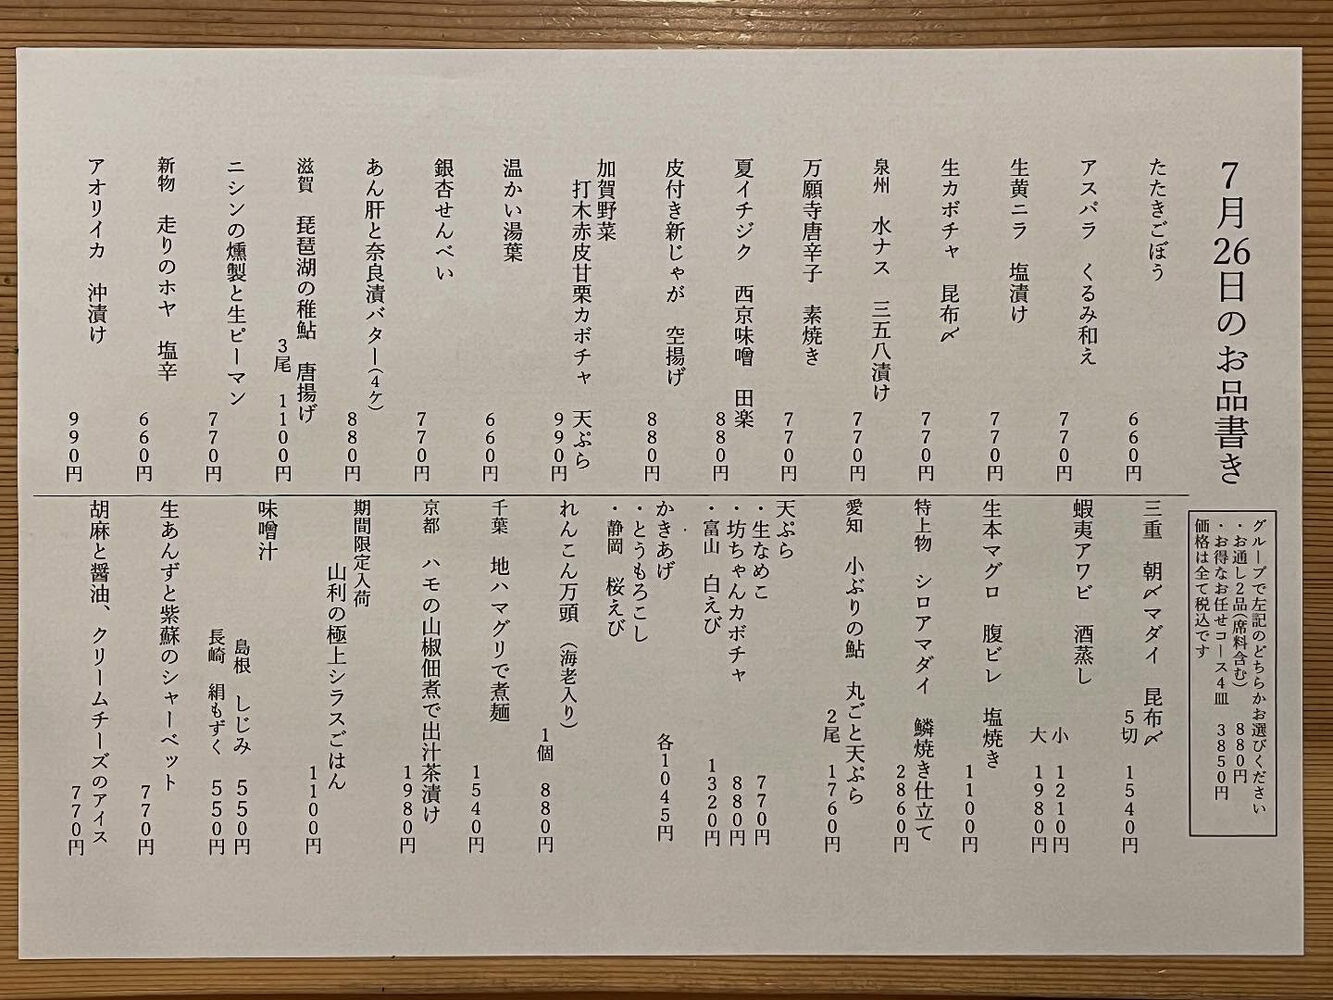 7月26日のお品書き
グループで左記のどちらかお選びください
・お通し2品(席料含む) 880円
・お得なお任せコース4皿 3850円
価格は全て税込です
たたきごぼう
660円
アスパラ くるみ和え
770円
生黄ニラ 塩漬け
770円
生カボチャ 昆布〆
770円
泉州 水ナス 三五八漬け
770円
万願寺唐辛子 素焼き
770円
夏イチジク 西京味噌 田楽
880円
皮付き新じゃが 空揚げ
880円
加賀野菜
打木赤皮甘栗カボチャ 天ぷら
990円
温かい湯葉
660円
銀杏せんべい
770円
あん肝と奈良漬バター(4ケ)
880円
滋賀 琵琶湖の稚鮎 唐揚げ
3尾 1100円
ニシンの燻製と生ピーマン
770円
新物 走りのホヤ 塩辛
660円
アオリイカ 沖漬け
990円
三重 朝〆マダイ 昆布〆
5切 1540円
蝦夷アワビ 酒蒸し
小 1210円
大 1980円
生本マグロ 腹ビレ 塩焼き
1100円
特上物 シロアマダイ 鱗焼き仕立て
2860円
愛知 小ぶりの鮎 丸ごと天ぷら
2尾 1760円
天ぷら
・生なめこ 770円
・坊ちゃんカボチャ 880円
・富山 白えび 1320円
かきあげ 各1045円
・とうもろこし
・静岡 桜えび
れんこん万頭 (海老入り)
1個 880円
千葉 地ハマグリで煮麺
1540円
京都 ハモの山椒佃煮で出汁茶漬け
1980円
期間限定入荷
山利の極上シラスごはん
1100円
味噌汁
島根 しじみ 550円
長崎 絹もずく 550円
生あんずと紫蘇のシャーベット
770円
胡麻と醤油、クリームチーズのアイス
770円